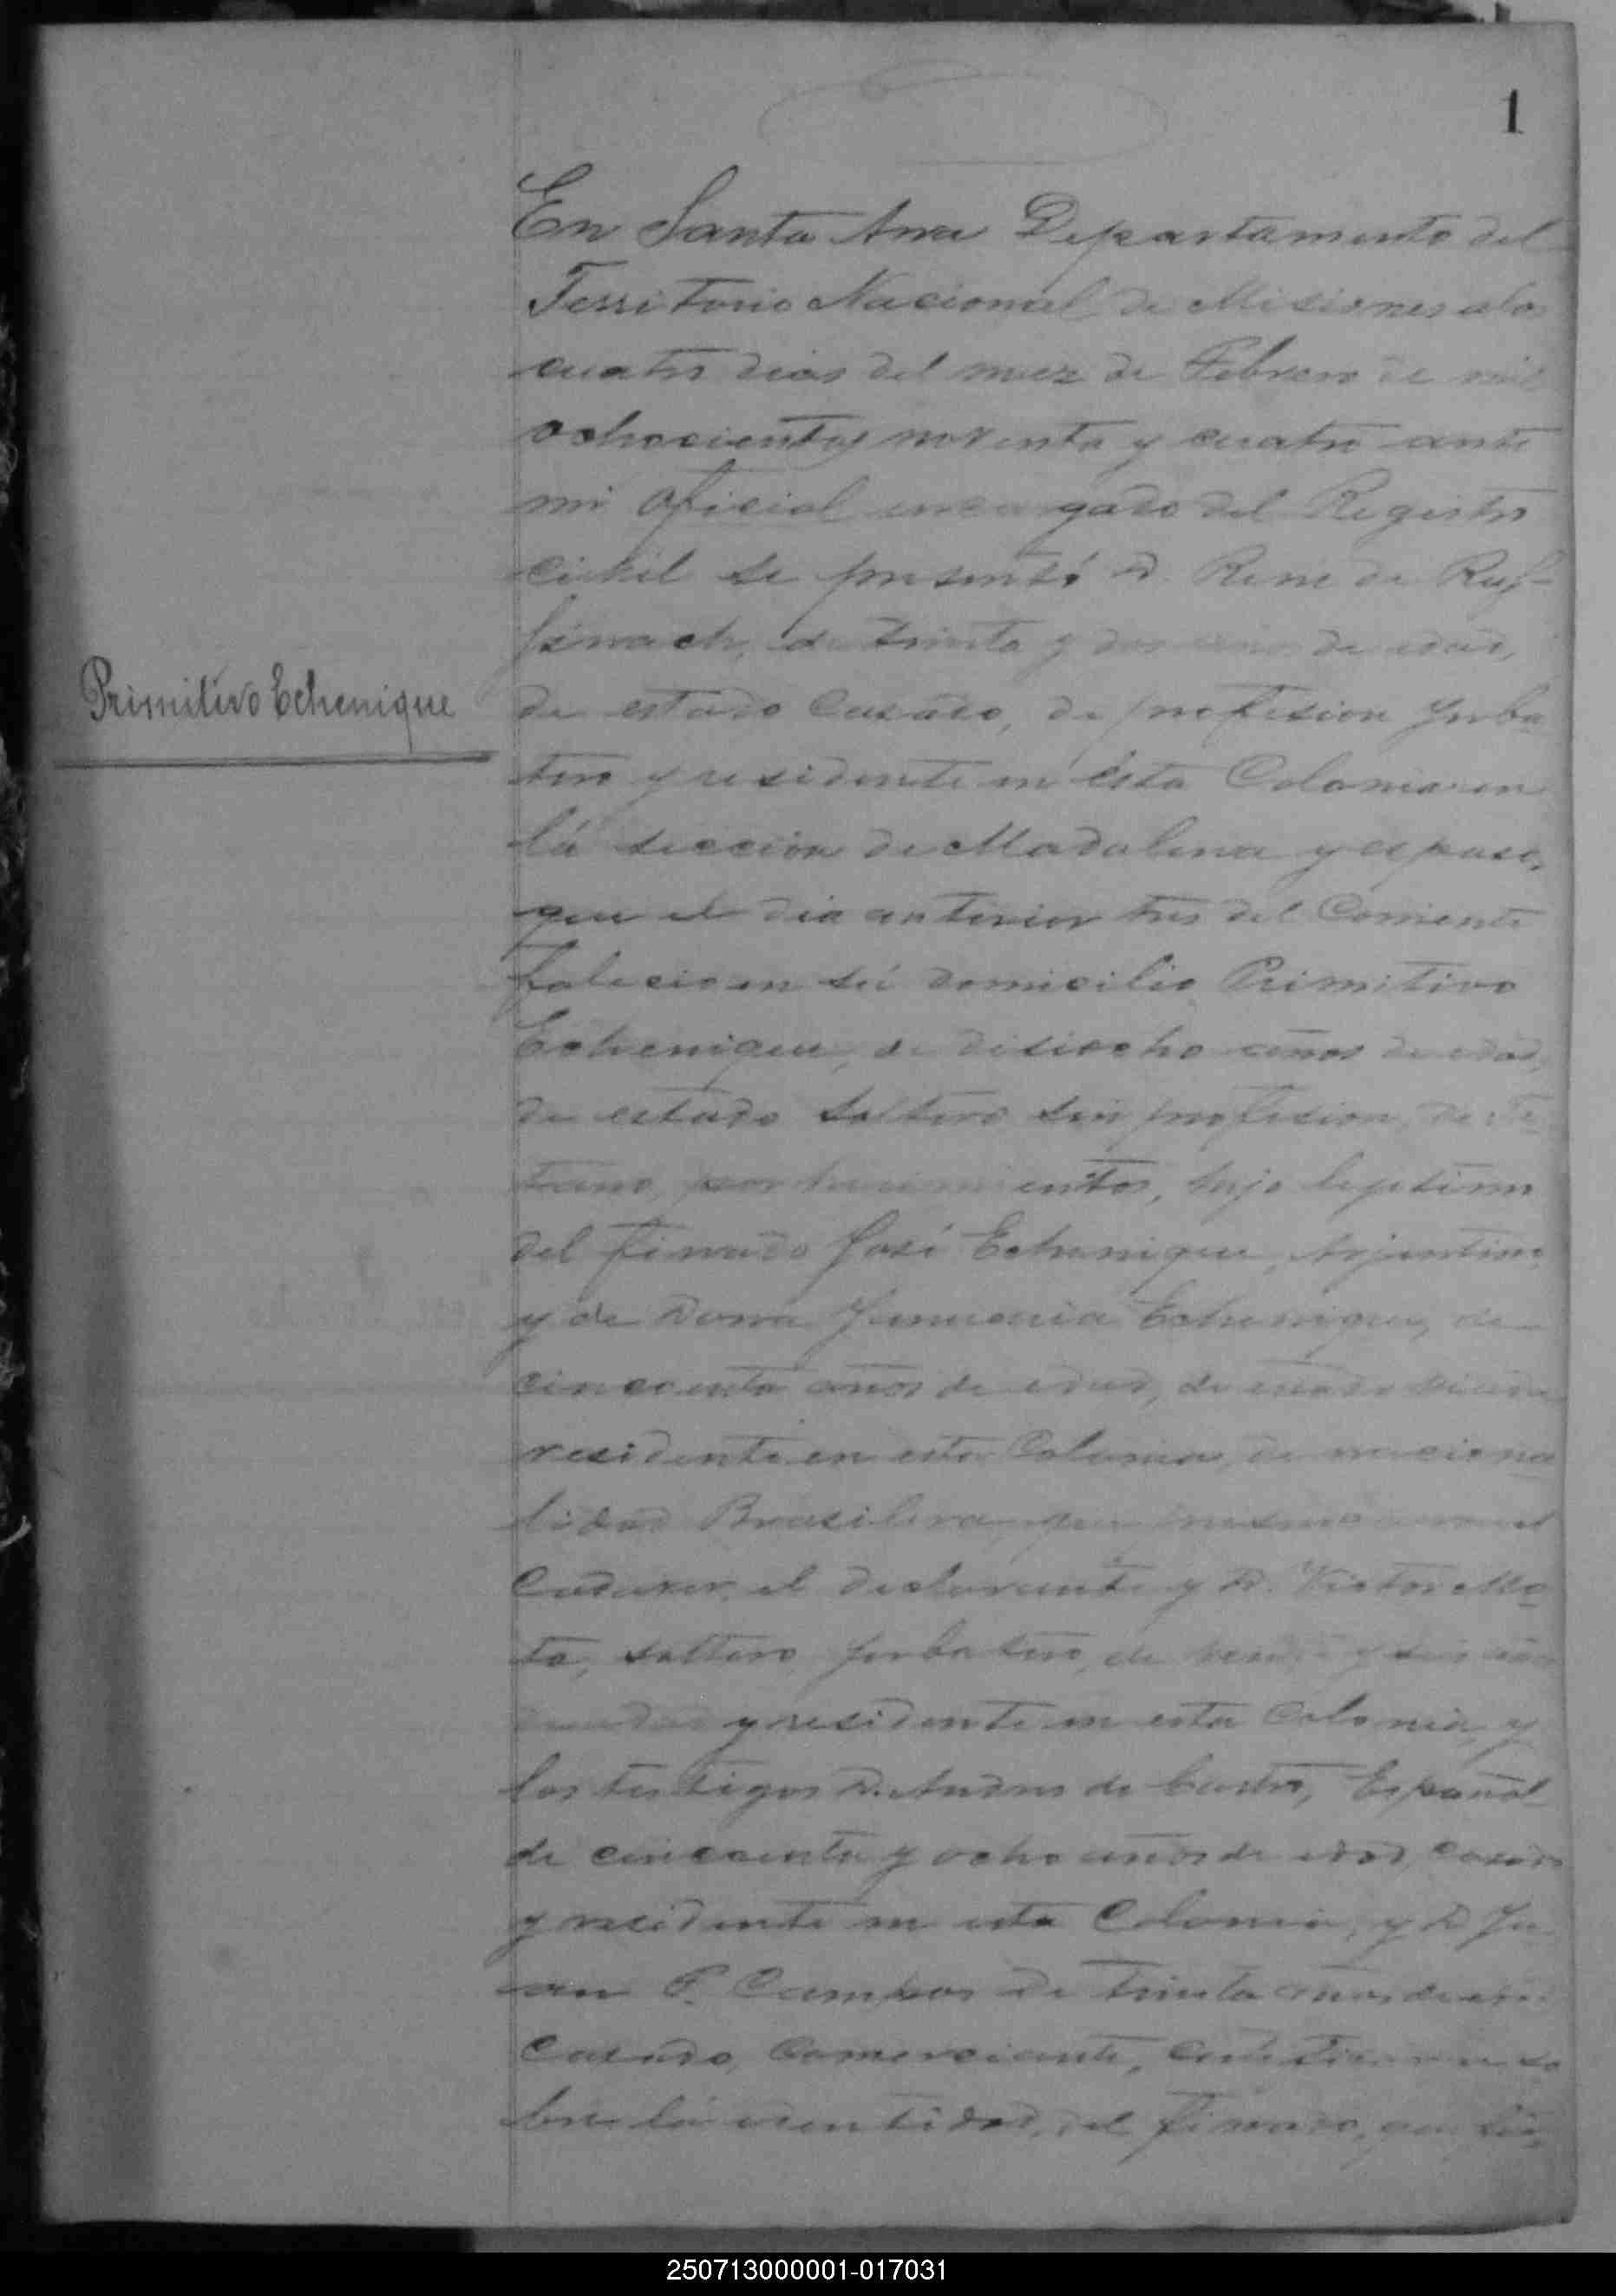 1
En Santa Ana Departamento del
Territorio Nacional de Misiones a los
cuatro dias del mez de Febrero de mil
ochocientos noventa y cuatro ante
mi oficial encargado del Registro
civil se presentó D. Rene de Ruf-
finach, de trinta y dos años de edad,
Primitivo Echenique
de estado Casado, de profesion yerba
tero y residente en ésta Colonia en
lá seccion de Madalena y espuso,
que el dia anterior tres del Corriente
falecio en sú domicilio Primitivo
Echenique, de disiocho años de edad,
de estado soltero sin profesion, de
por, hijo lejitimo
del finado José Echenique, Arjentino
y de Dona Echenique, de
cincoenta años de edad, de estado viuda
residente en esta Colonia, de naciona
lidad Brasilera, que el
Cadaver, el declarante y D. Victor Mo
ta, soltero yerbatero, de y seis años
y residente en esta Colonia, y
los testigos D. Andres de Castro, Español
de cincoenta y ocho años de edad, casado
y residente en esta Colonia, y D Ju
an P. Campos de trinta años de
Casado, Comerciante, so
bre lá identidad, del finado, que
250713000001-017031